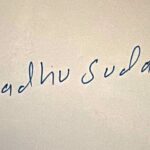 adhu suda